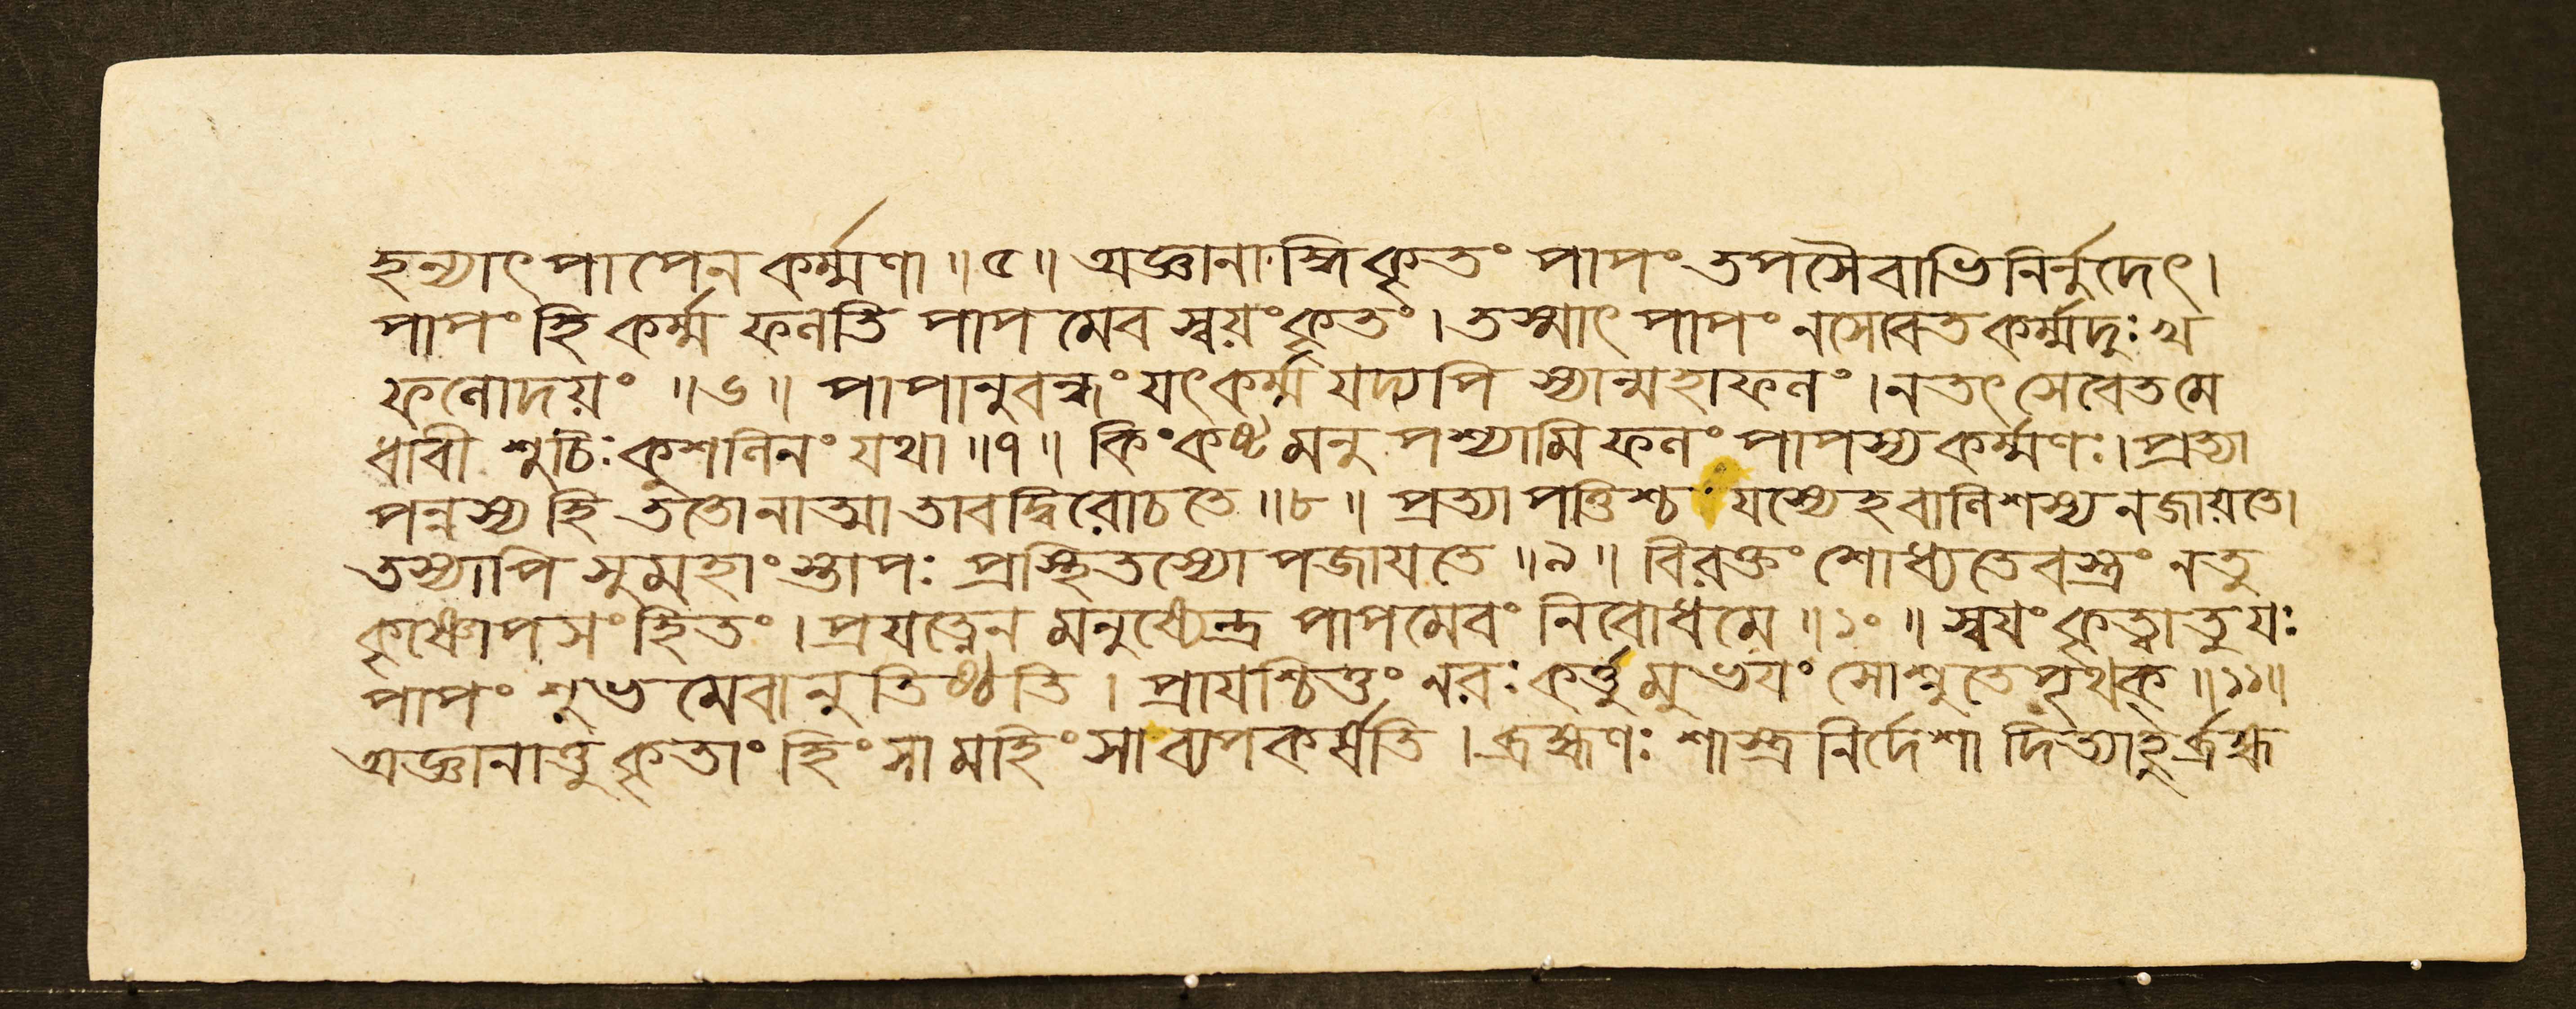 হন্যাৎ পাপেন কর্ম্মণা ॥ ৫ ॥ অজ্ঞানাদ্ধি কৃতং পাপং তপসৈবাভিনির্নুদেৎ ।
পাপং হি কর্ম্ম ফলতি পাপ মেব স্বয়ংকৃতং । তস্মাৎ পাপং নসেবেত কর্ম্মদুঃখ
ফলোদয়ং ॥ ৬ ॥ পাপানুবন্ধং যৎকর্ম্ম যদ্যপি স্যান্মহাফলং । নতৎ সেবেতমে
ধাবী শুচিঃ কুশলিনং যথা ॥ ৭ ॥ কিংকষ্ট মনু পশ্যামি ফলং পাপস্য কর্ম্মণঃ । প্রত্যা
পন্নস্য হি ততোনাত্মা তাবদ্বিরোচতে ॥ ৮ ॥ প্রত্যা পত্তিশ্চ যস্যেহ বালিশস্য নজায়তে ।
তস্যাপি সুমহাংস্তাপঃ প্রস্থিতস্যো পজায়তে ॥ ৯ ॥ বিরক্তং শোধ্যতেবস্ত্রং নতু
কৃষ্ণোপসংহিতং । প্রযত্নেন মনুষ্যেন্দ্র পাপমেবং নিবোধমে ॥ ১০ ॥ স্বয়ং কৃত্বাতু যঃ
পাপং শুভ মেবানু তিষ্ঠতি । প্রায়শ্চিত্তং নরঃ কর্ত্তু মুভয়ং সোশ্নুতে পৃথক্ ॥ ১১ ॥
অজ্ঞানাত্তু কৃতাং হিংসা মহিংসা ব্যপকর্ষতি । ব্রাহ্মণঃ শাস্ত্র নির্দেশা দিত্যাহুর্ব্রহ্ম